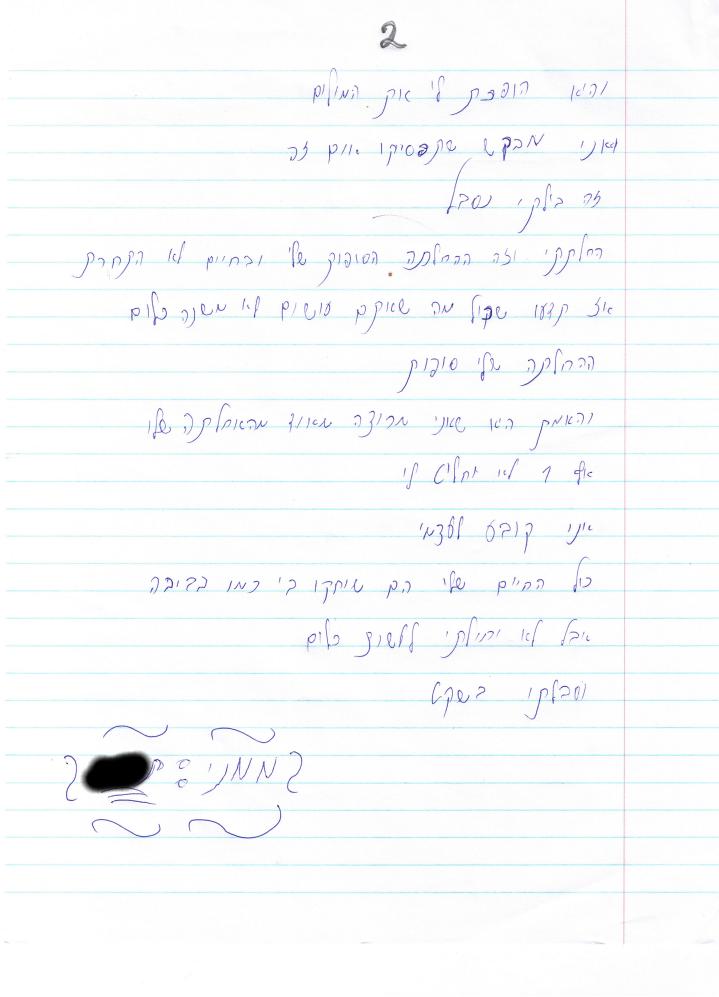 2
והיא הופכת לי את המילים
ואני מבקש שתפסיקו אתם זה
זה בילתי נסבל
החלתתי וזה ההחלתה הסופית שלי ובחיים לא התחרת
אז תדעו שכול מה שאתם עושים לא משנה כלום
ההחלתה שלי סופית
והאמת היא שאני מרוצה מאוד מהאחלתה שלי
אף 1 לא יחליט לי
אני קובע לעצמי
כול החיים שלי הם שיחקו בי כמו בביבה
אבל לא יכילתי ללשות כלום
וסבלתי בשקט
ממני: